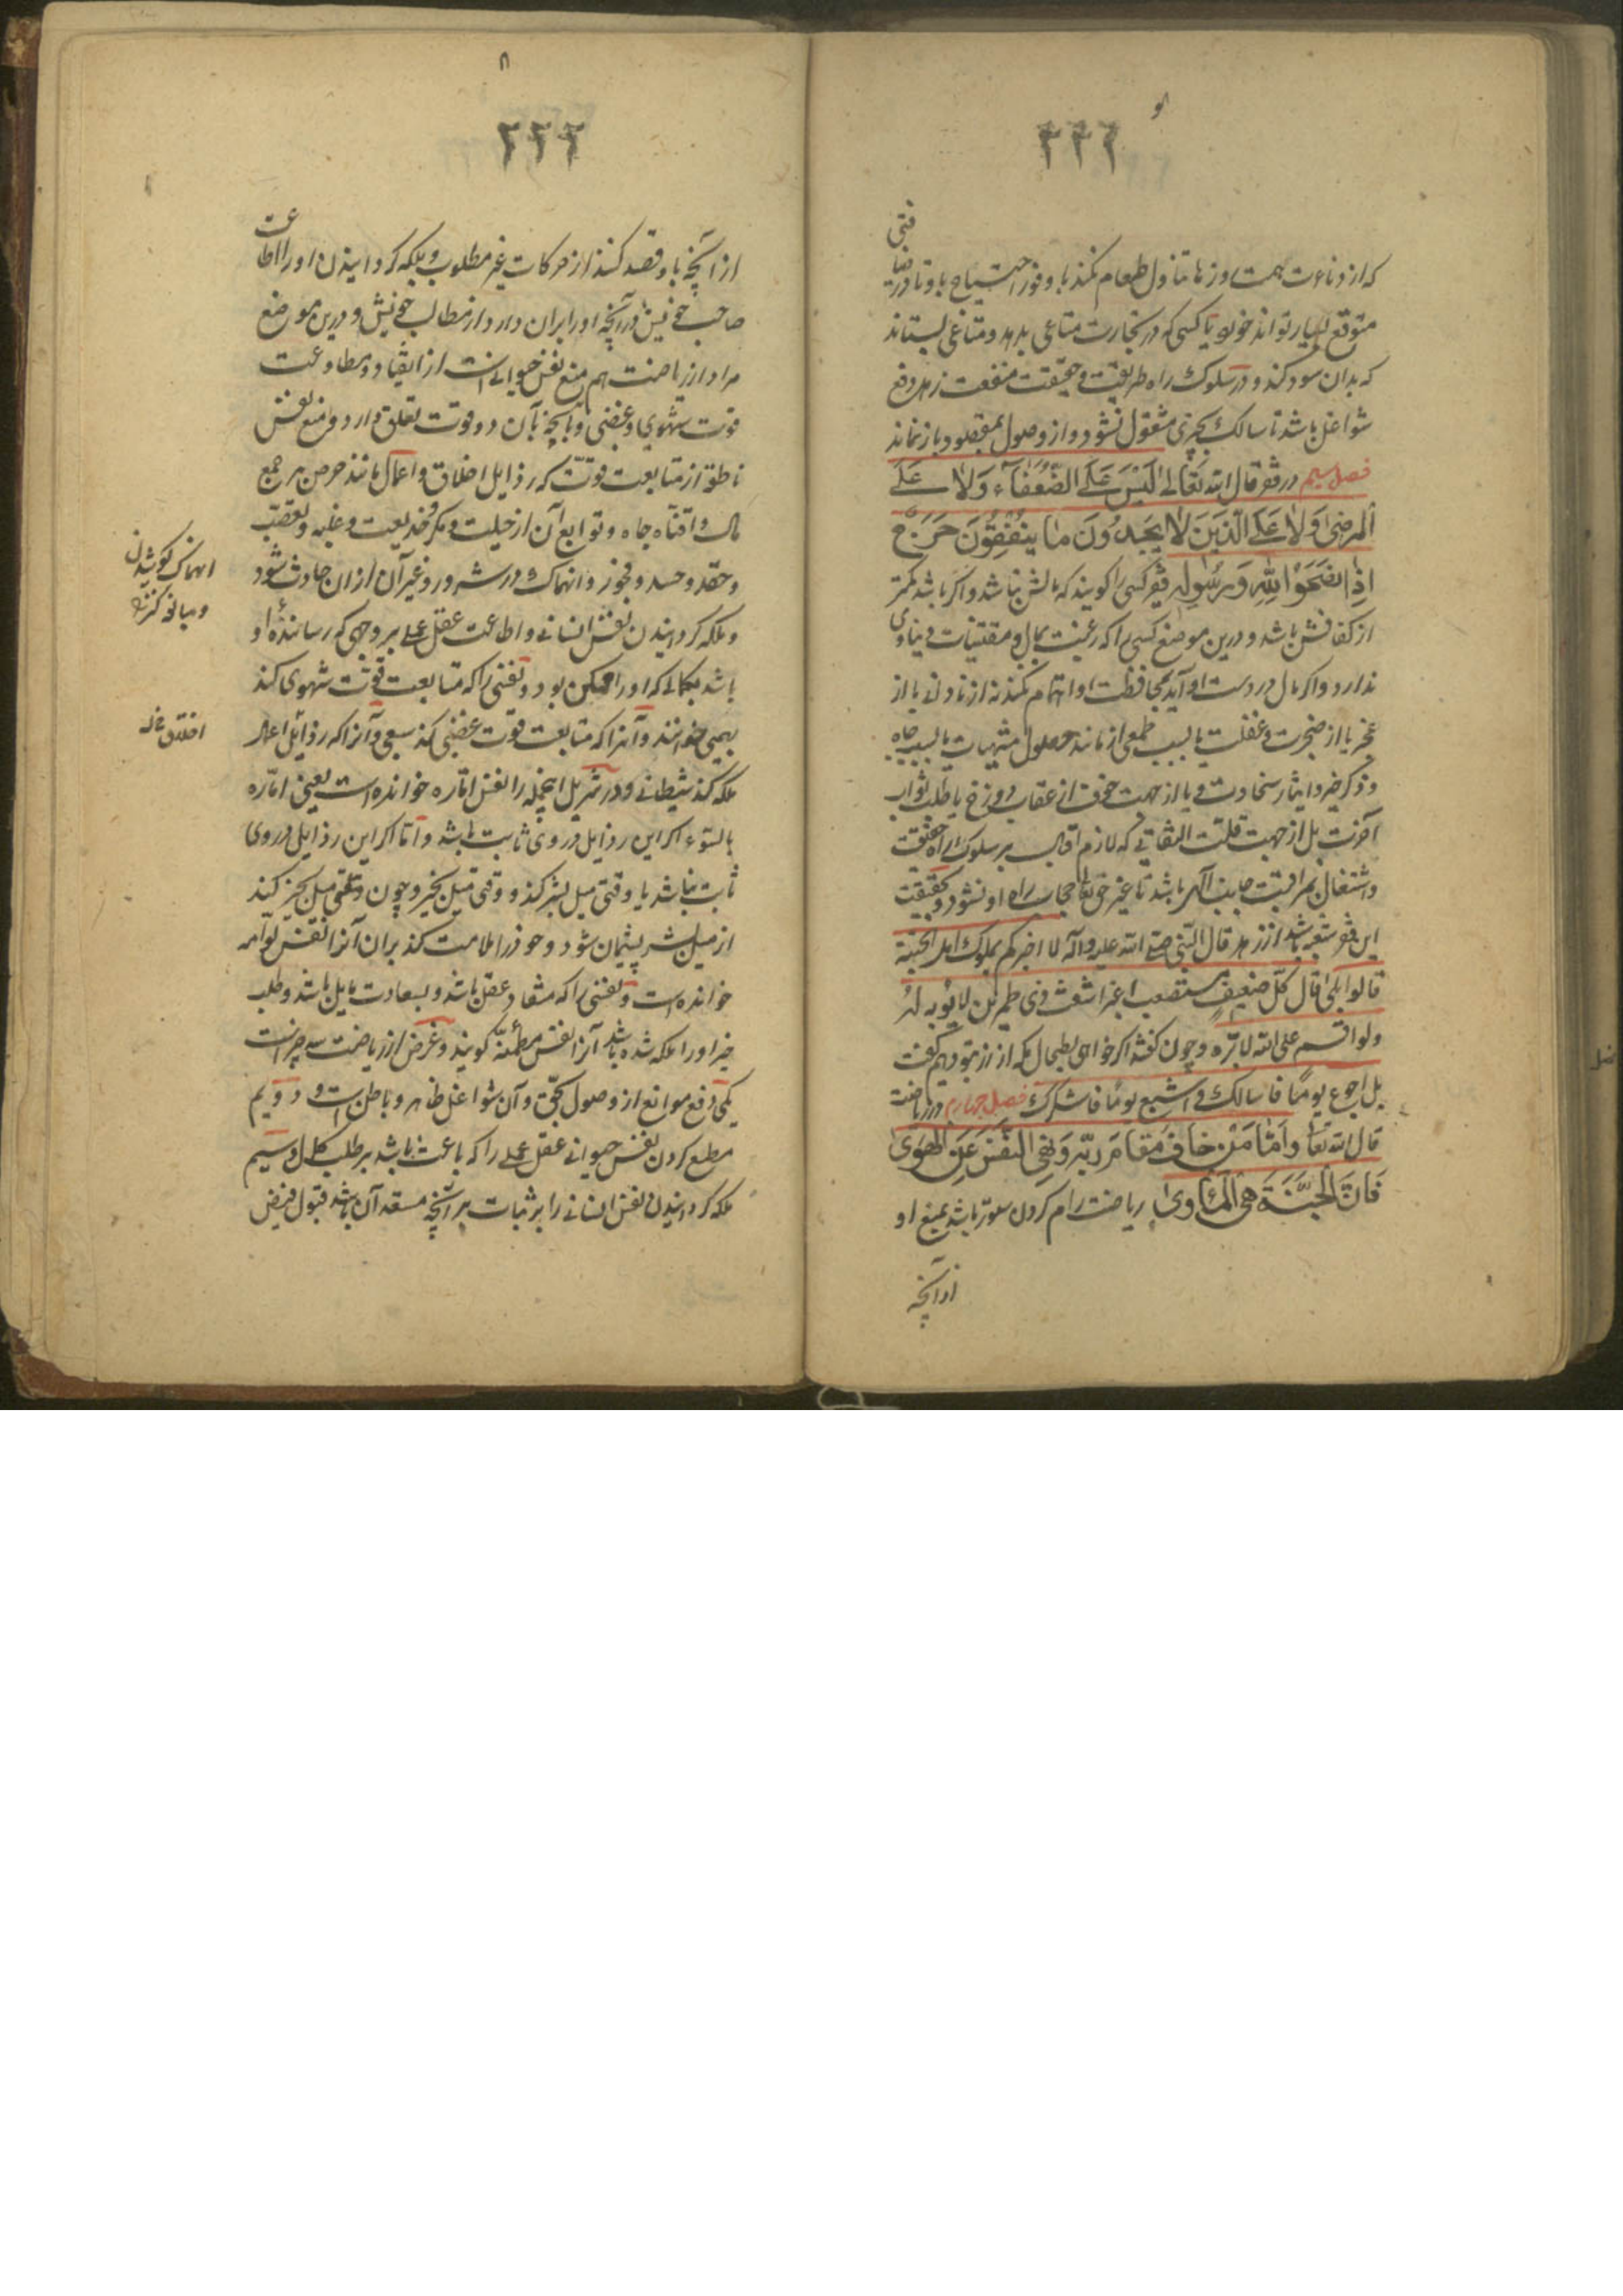 ۲۲۲
فتی
که از دناءت همت روزها تناول طعام نکند با وفور احتیاج باو تا در ضیا
متوقع بسیار تواند خورد یا کسی که در تجارت متاعی بدهد و متاعی بستاند
که بدان سود کند و در سلوک راه طریقت و حقیقت منفعت زهد رفع
شواغل باشد تا سالک بچیزی مشغول نشود و از وصول بمقصود باز نماند
فصل سیم در فقر قال الله تعالی لَیْسَ عَلَی الضُّعَفَآءِ وَلَا عَلَی
الْمَرضٰی وَلَا عَلَی الَّذِینَ لَا یَجِدُونَ مَا یُنْفِقُونَ حَرَجٌ
اِذَا نَصَحَوْا لِلّٰهِ وَرَسُولِه فقیر کسی را کویند که مالش نباشد و اکر باشد کمتر
از کفافش باشد و درین موضع کسی را که رغبت بمال و مقتنیات دنیاوی
ندارد و اکر مال در دست او آید بمحافظت او اهتمام نکند نه از نادانی یا از
عجز یا از ضجرت و غفلت یا بسبب طمعی از مانند حصول مشتهیات یا بسبب جاه
و ذکر خیر و ایثار سخاوت و یا از جهت خوف از عقاب دوزخ یا طلب ثواب
آخرت بل از جهت قلت التفاتی که لازم اقبال بر سلوک راه حقیقت
و اشتغال بمراقبت جانب الهی باشد تا غیر حق تعا حجاب راه او نشود و بحقیقت
این فقر شعبه باشد از زهد قال النّبی صلی الله علیه و آله لا اخبرکم بملوک اهل الجنّة
قالوا بلی قال کلّ ضعیفٍ مستضعب اغبر اشعث ذی طمرین لا یؤبه له
ولو اقسم علی الله لابرّه و چون کفتند اکر خواهی بطحای مکه از زر بتو دهیم کفت
بل اجوع یومًا فاسالک و اشبع یومًا فاشکرک فصل چهارم در ریاضت
قال الله تعا وَاَمَّا مَنْ خَافَ مَقَامَ رَبِّهِ وَنَهَی النَّفْسَ عَنِ الْهَوٰی
فَاِنَّ الْجَنَّةَ هِیَ الْمَاْوٰی ریاضت رام کردن ستور باشد بمنع او
از آنچه
۸
۲۲۲
از آنچه باو قصد کند از حرکات غیر مطلوب و ملکه کردانیدن او را اطاعت
صاحب خویش در آنچه او را بران دارد از مطالب خویش و درین موضع
مراد از ریاضت هم منع نفس حیوانی است از انقیاد و مطاوعت
قوت شهوی و غضبی و آنچه بآن دو قوت تعلق دارد و منع نفس
ناطقه از متابعت قوتّ که رذایل اخلاق و اعمال مانند حرص بر جمع
مال و اقتناء جاه و توابع آن از حیلت و مکر و خدیعت و غلبه و تعصّب
و حقد و حسد و فجور و انهماک در شرور و غیر آن از ان حادث شود
و ملکه کردانیدن نفس انسانی و اطاعت عقل عملی بر وجهی که رسانندهٔ او
باشد بکمالی که او را ممکن بود و نفسی را که متابعت قوّت شهوی کند
بهیمی خوانند و آنرا که متابعت قوت غضبی کند سبعی و آنرا که رذایل اعمال
ملکه کند شیطانی و در تنزیل اینجمله را نفس امّاره خوانده است یعنی امّاره
بالسّوء اکر این رذایل در وی ثابت باشد و امّا اکر این رذایل در وی
ثابت نباشد یا وقتی میل بشر کند و وقتی میل بخیر و چون وقتی میل بخیر کند
از میل بشر پشیمان شود و خود را ملامت کند بران آنرا نفس لوّامه
خوانده است و نفسی را که منقاد عقل باشد و بسعادت مایل باشد و طلب
خیر او را ملکه شده باشد آنرا نفس مطمئنّه کویند و غرض از ریاضت سه چیز است
یکی رفع موانع از وصول بحق و آن شواغل ظاهر و باطن است و دویم
مطیع کردن نفس حیوانی عقل عملی را که باعث باشد بر طلب کمال و سیم
ملکه کردانیدن نفس انسانی را بر ثبات بر آنچه مستعد آن باشد قبول فیض
انهماک کوشیدن
و مبالغه کردن